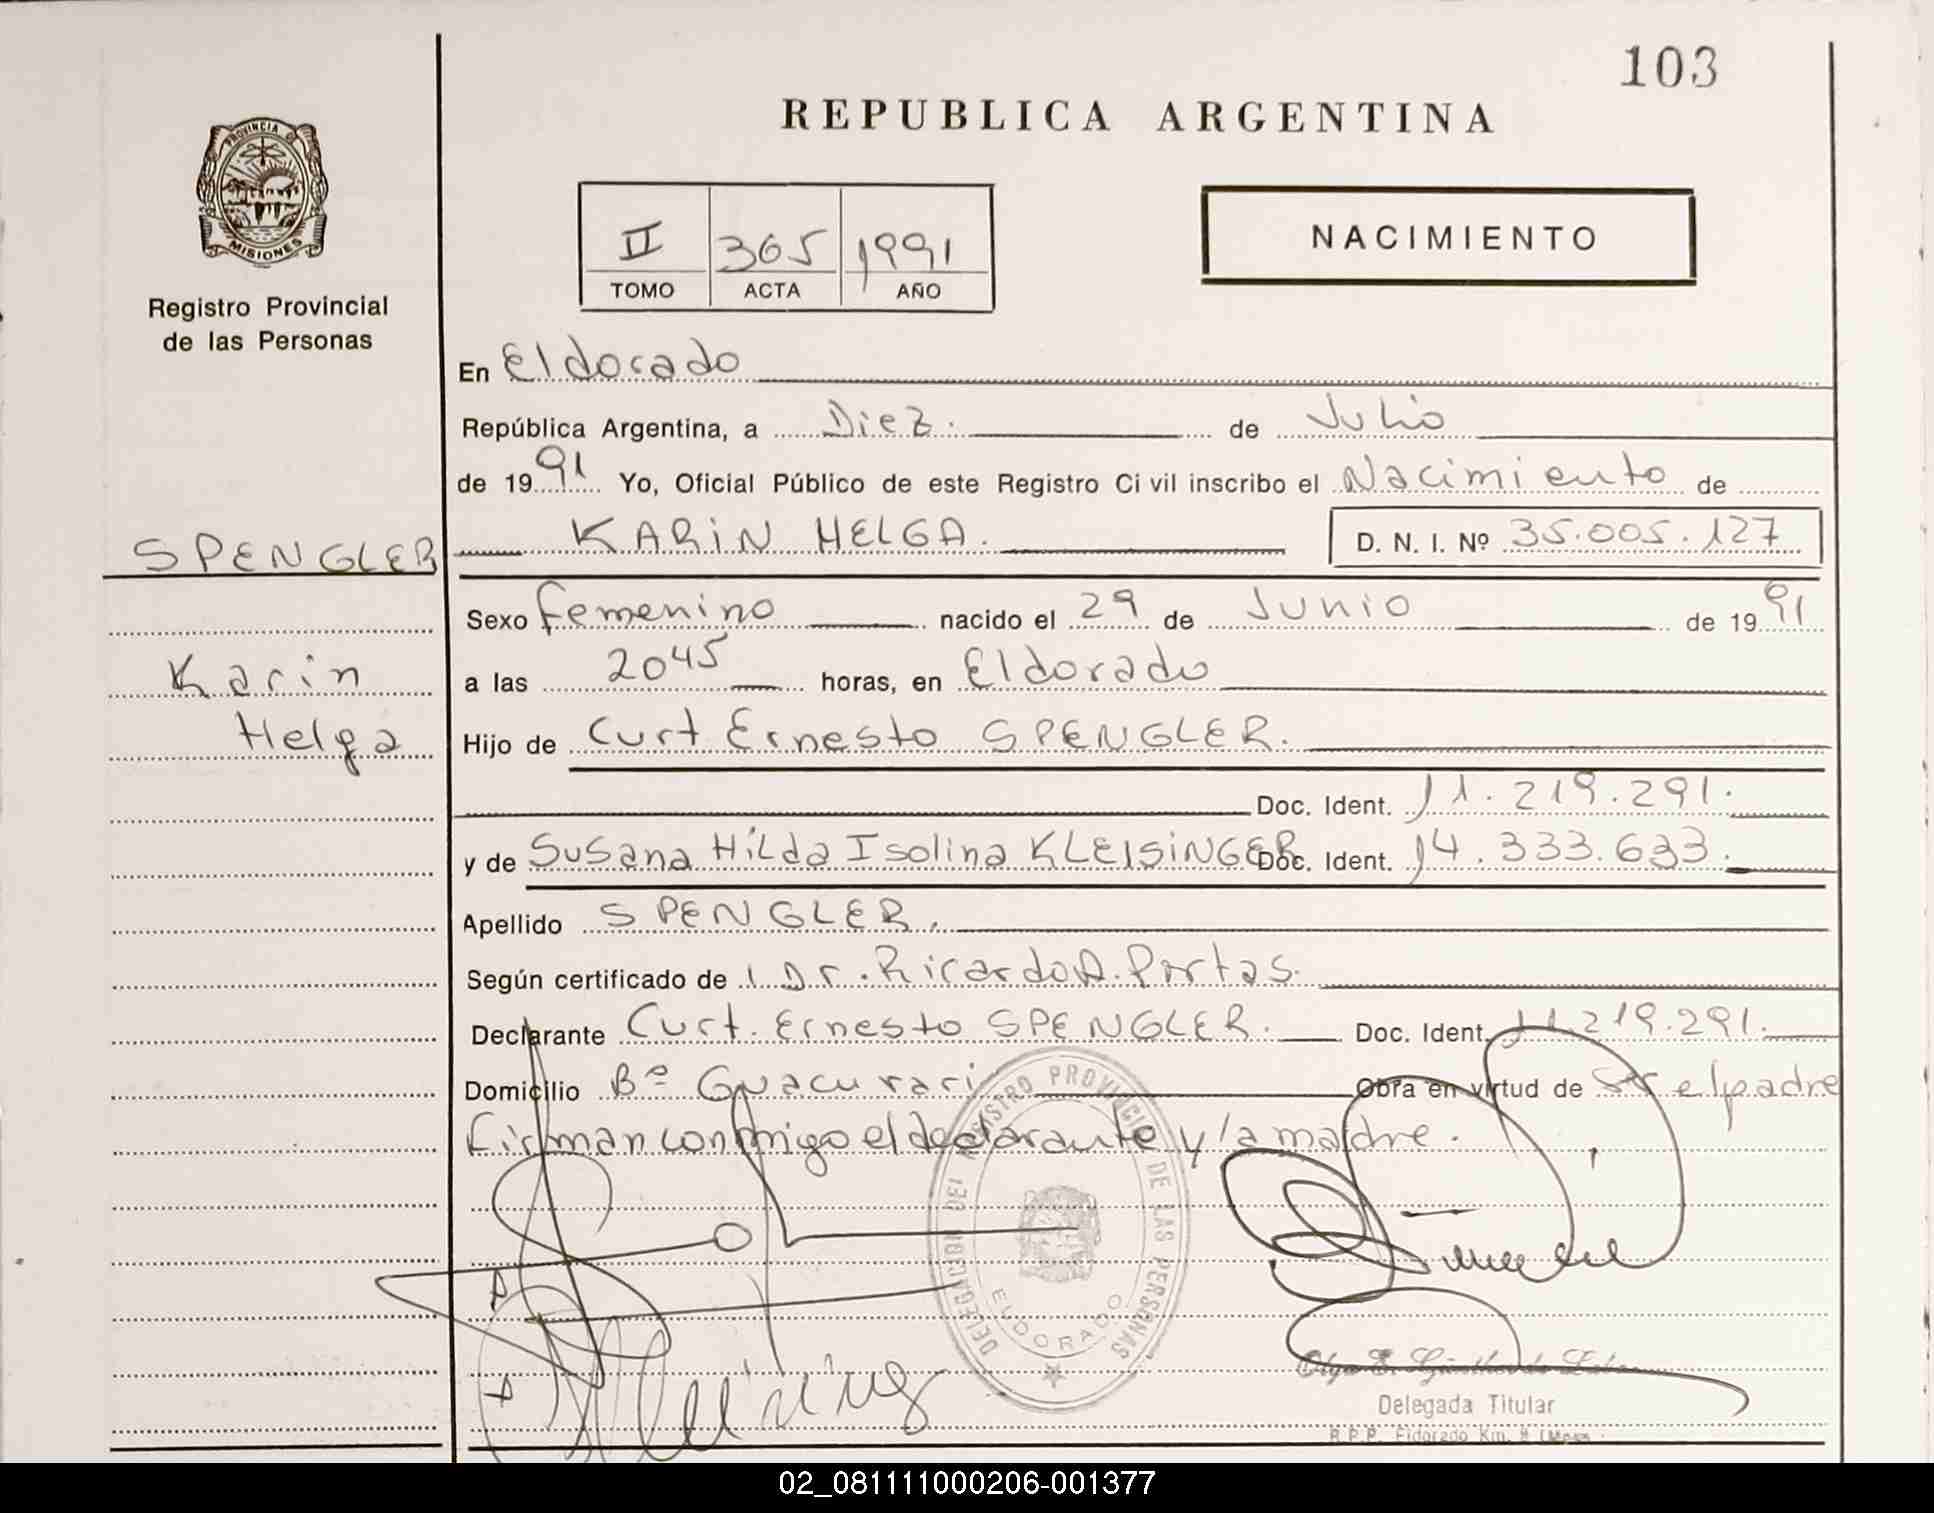 103
REPUBLICA ARGENTINA
PROVINCIA D
MISIONES
Registro Provincial
de las Personas
II 365 1991
TOMO ACTA AÑO
NACIMIENTO
En Eldorado
República Argentina, a Diez. de Julio
de 1991 Yo, Oficial Público de este Registro Civil inscribo el Nacimiento de
SPENGLER
KARIN HELGA. D. N. I. Nº 35.005.127
Sexo Femenino nacido el 29 de Junio de 1991
Karin
a las 2045 horas, en Eldorado
Helga
Hijo de Curt Ernesto SPENGLER.
Doc. Ident. 11.219.291.
y de Susana Hilda Isolina KLEISINGER Doc. Ident. 14.333.633.
Apellido SPENGLER.
Según certificado de Dr. Ricardo A. Portas.
Declarante Curt. Ernesto SPENGLER. Doc. Ident. 11.219.291.
Domicilio Bº Guacurari Obra en virtud de ser el padre
Firman conmigo el declarante y la madre.
REGISTRO PROVINCIAL DE LAS PERSONAS
DELEGACION 130
ELDORADO
Delegada Titular
R.P.P. Eldorado Km. 9
02_081111000206-001377